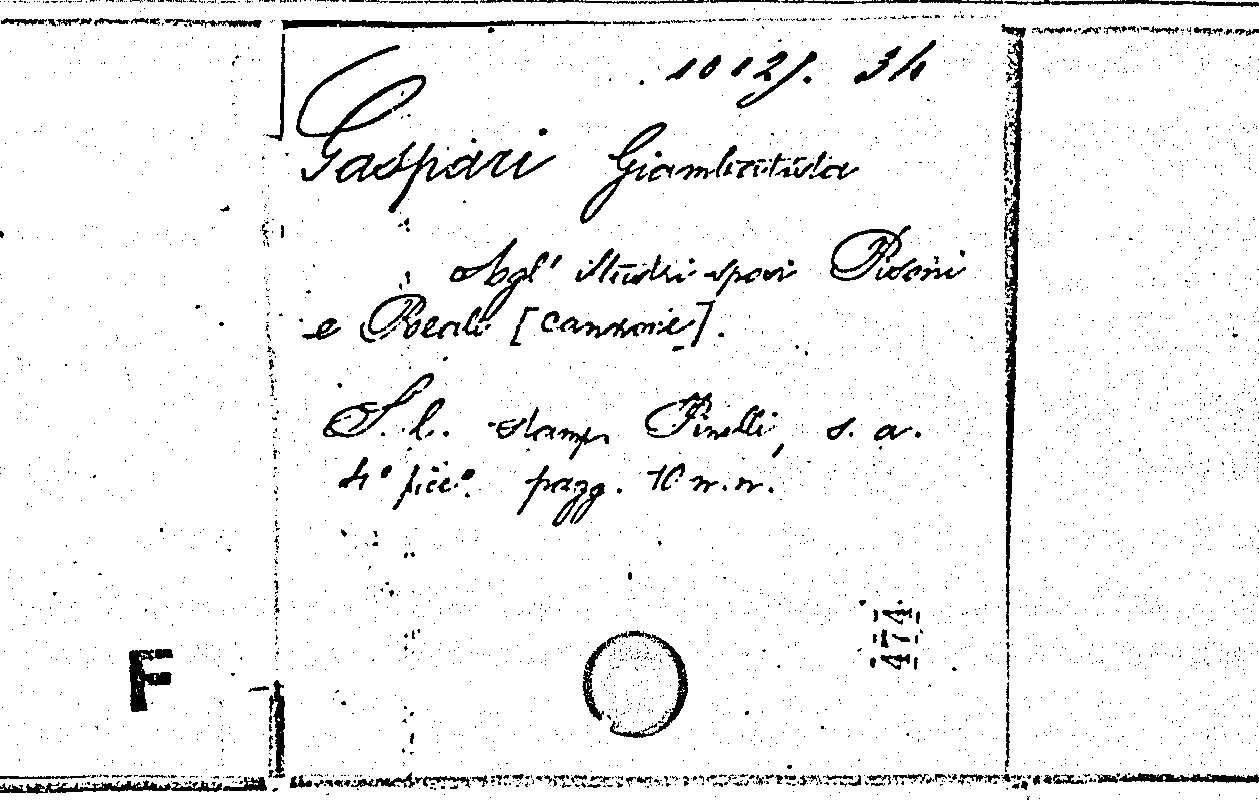 1012f. 34
Gaspari Giambatista
Agl' illustri sposi Pisani
e Reali [canzone].
S. l. stamp. Pinelli, s. a.
4° picc°. pagg. 10 n.n.
474
F